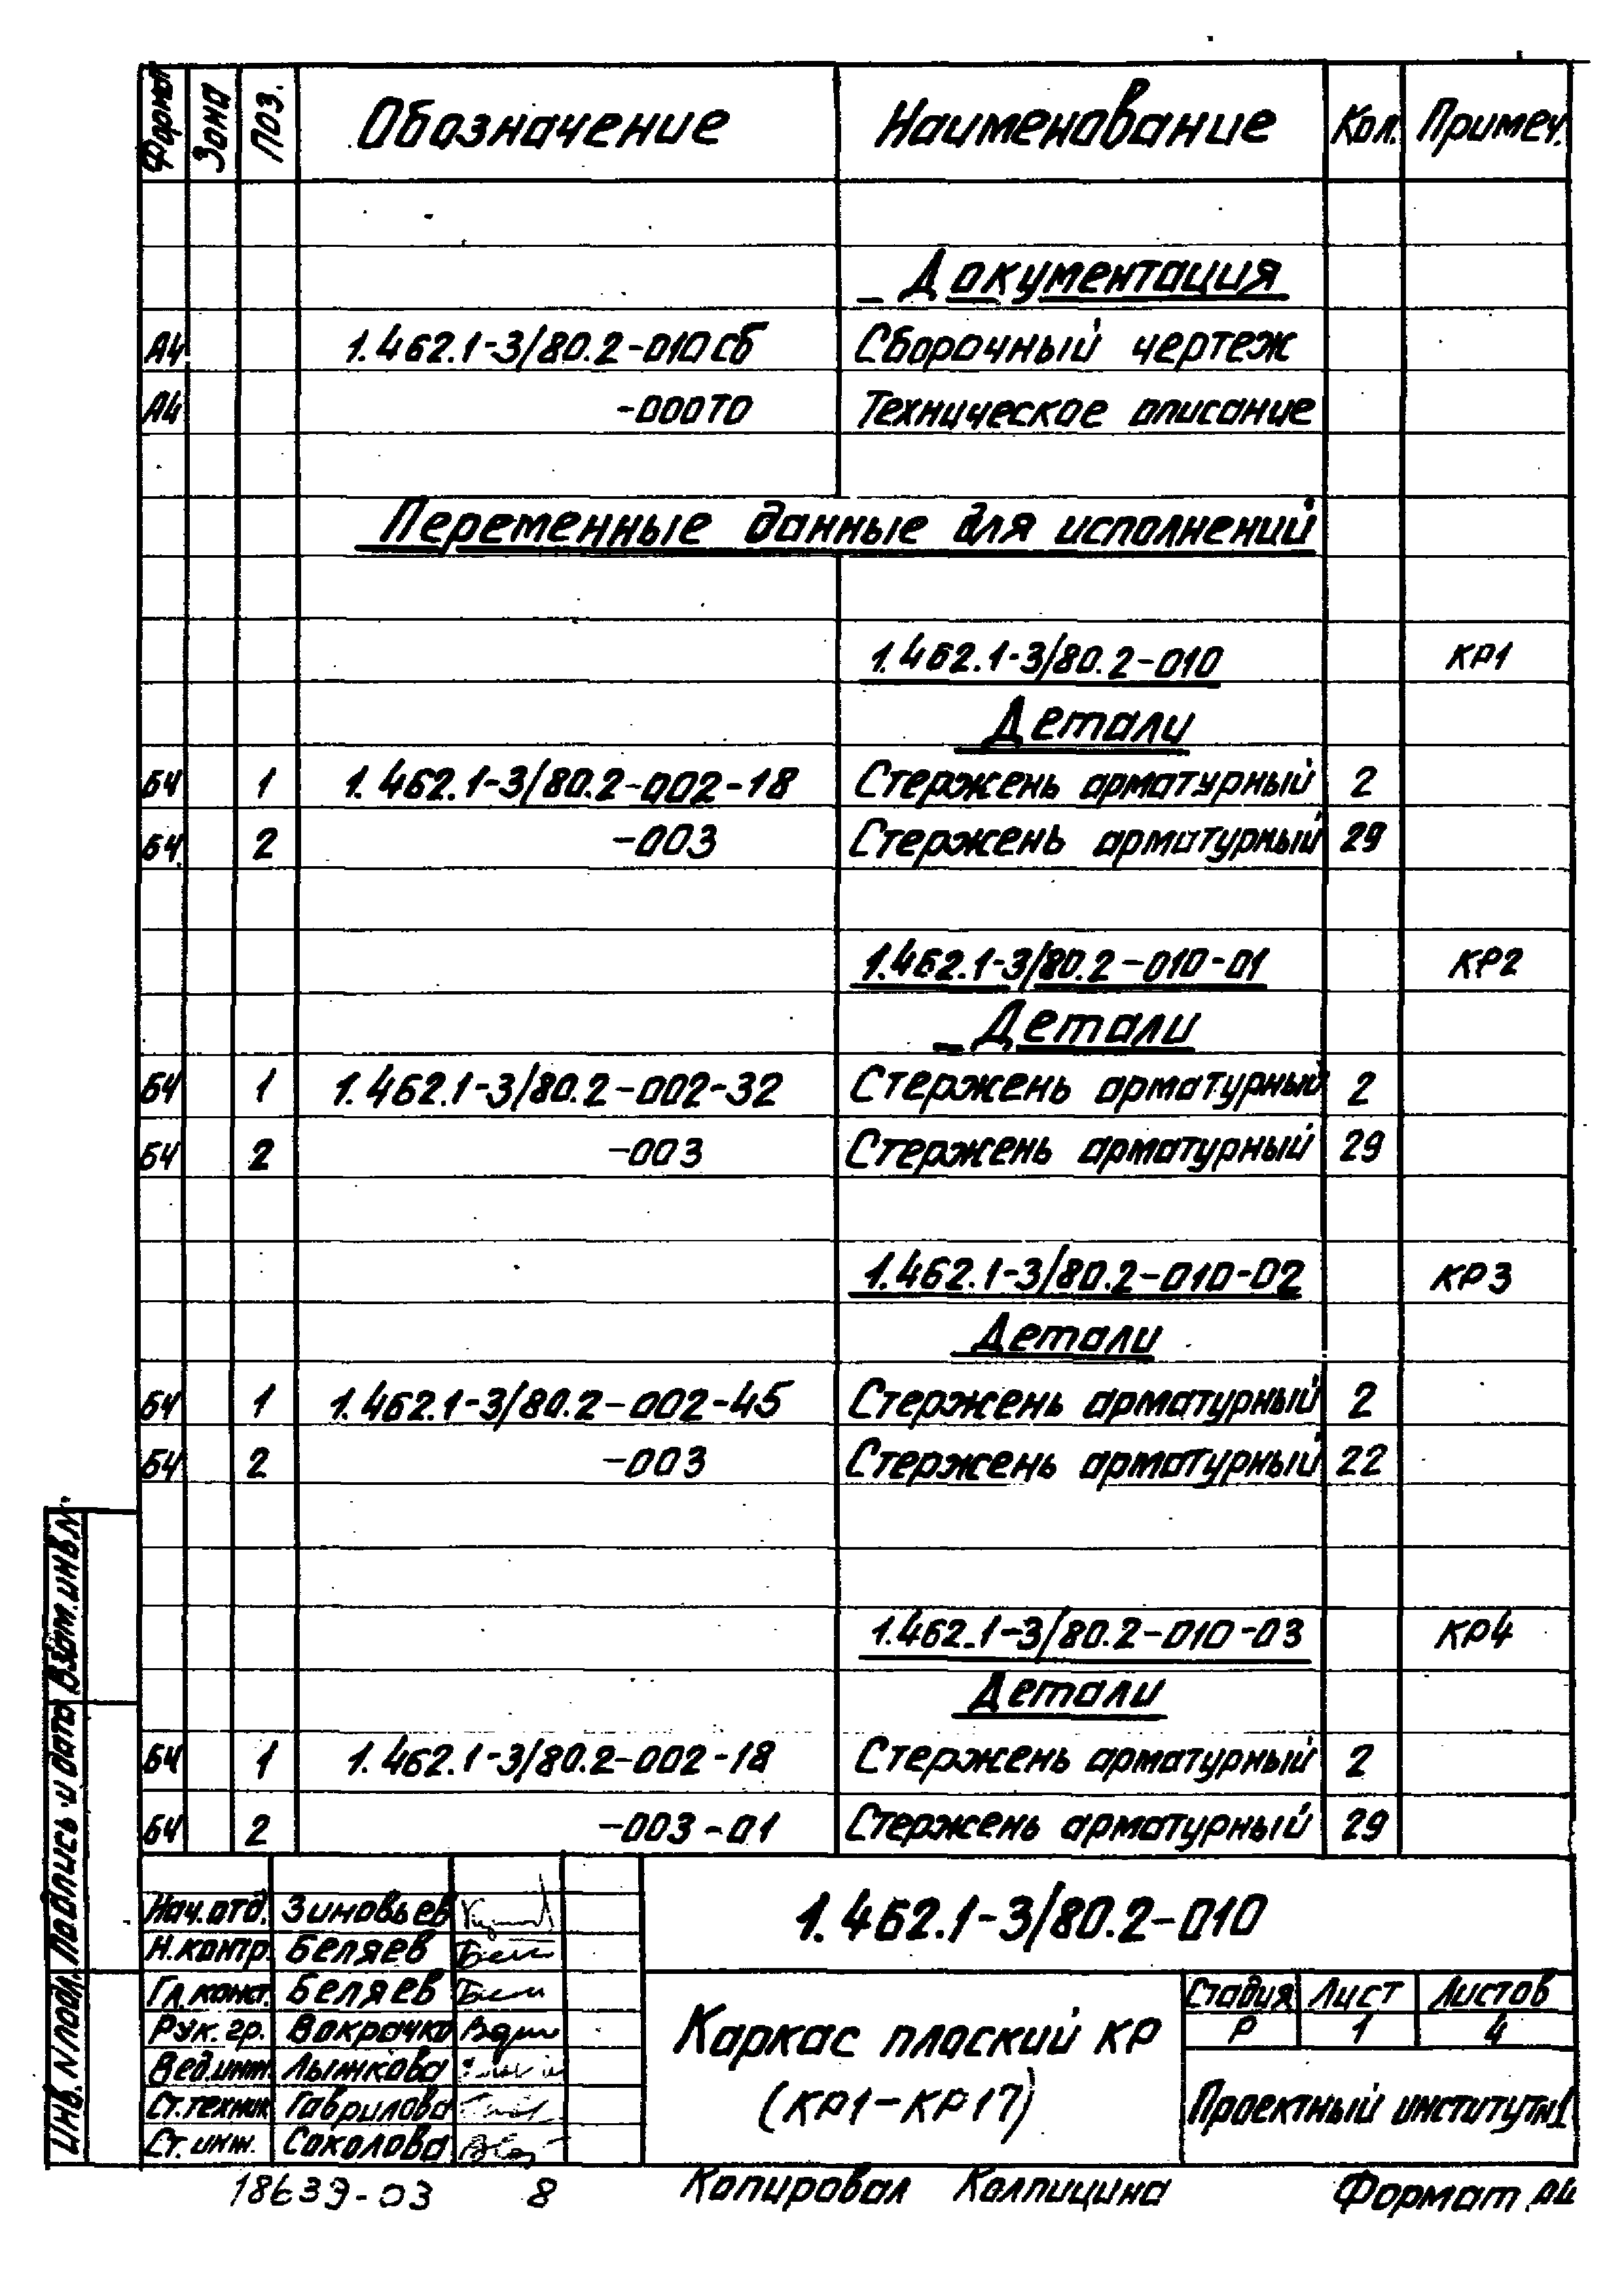 Формат Зона Поз. Обозначение Наименование Кол. Примеч.
Документация
А4 1.462.1-3/80.2-010сб Сборочный чертеж
А4 -000ТО Техническое описание
Переменные данные для исполнений
1.462.1-3/80.2-010 КР1
Детали
БЧ 1 1.462.1-3/80.2-002-18 Стержень арматурный 2
БЧ 2 -003 Стержень арматурный 29
1.462.1-3/80.2-010-01 КР2
Детали
БЧ 1 1.462.1-3/80.2-002-32 Стержень арматурный 2
БЧ 2 -003 Стержень арматурный 29
1.462.1-3/80.2-010-02 КР3
Детали
БЧ 1 1.462.1-3/80.2-002-45 Стержень арматурный 2
БЧ 2 -003 Стержень арматурный 22
1.462.1-3/80.2-010-03 КР4
Детали
БЧ 1 1.462.1-3/80.2-002-18 Стержень арматурный 2
БЧ 2 -003-01 Стержень арматурный 29
Взам.инв.N
Подпись и дата
Инв.Nподл.
Нач.отд. Зиновьев
Н.контр. Беляев
Гл.конст. Беляев
Рук.гр. Вакрачко
Вед.инж. Лыжкова
Ст.техник Гаврилова
Ст.инж. Соколова
1.462.1-3/80.2-010
Каркас плоский КР
(КР1-КР17)
Стадия Лист Листов
Р 1 4
Проектный институт N1
18639-03 8 Копировал Колпицина Формат А4